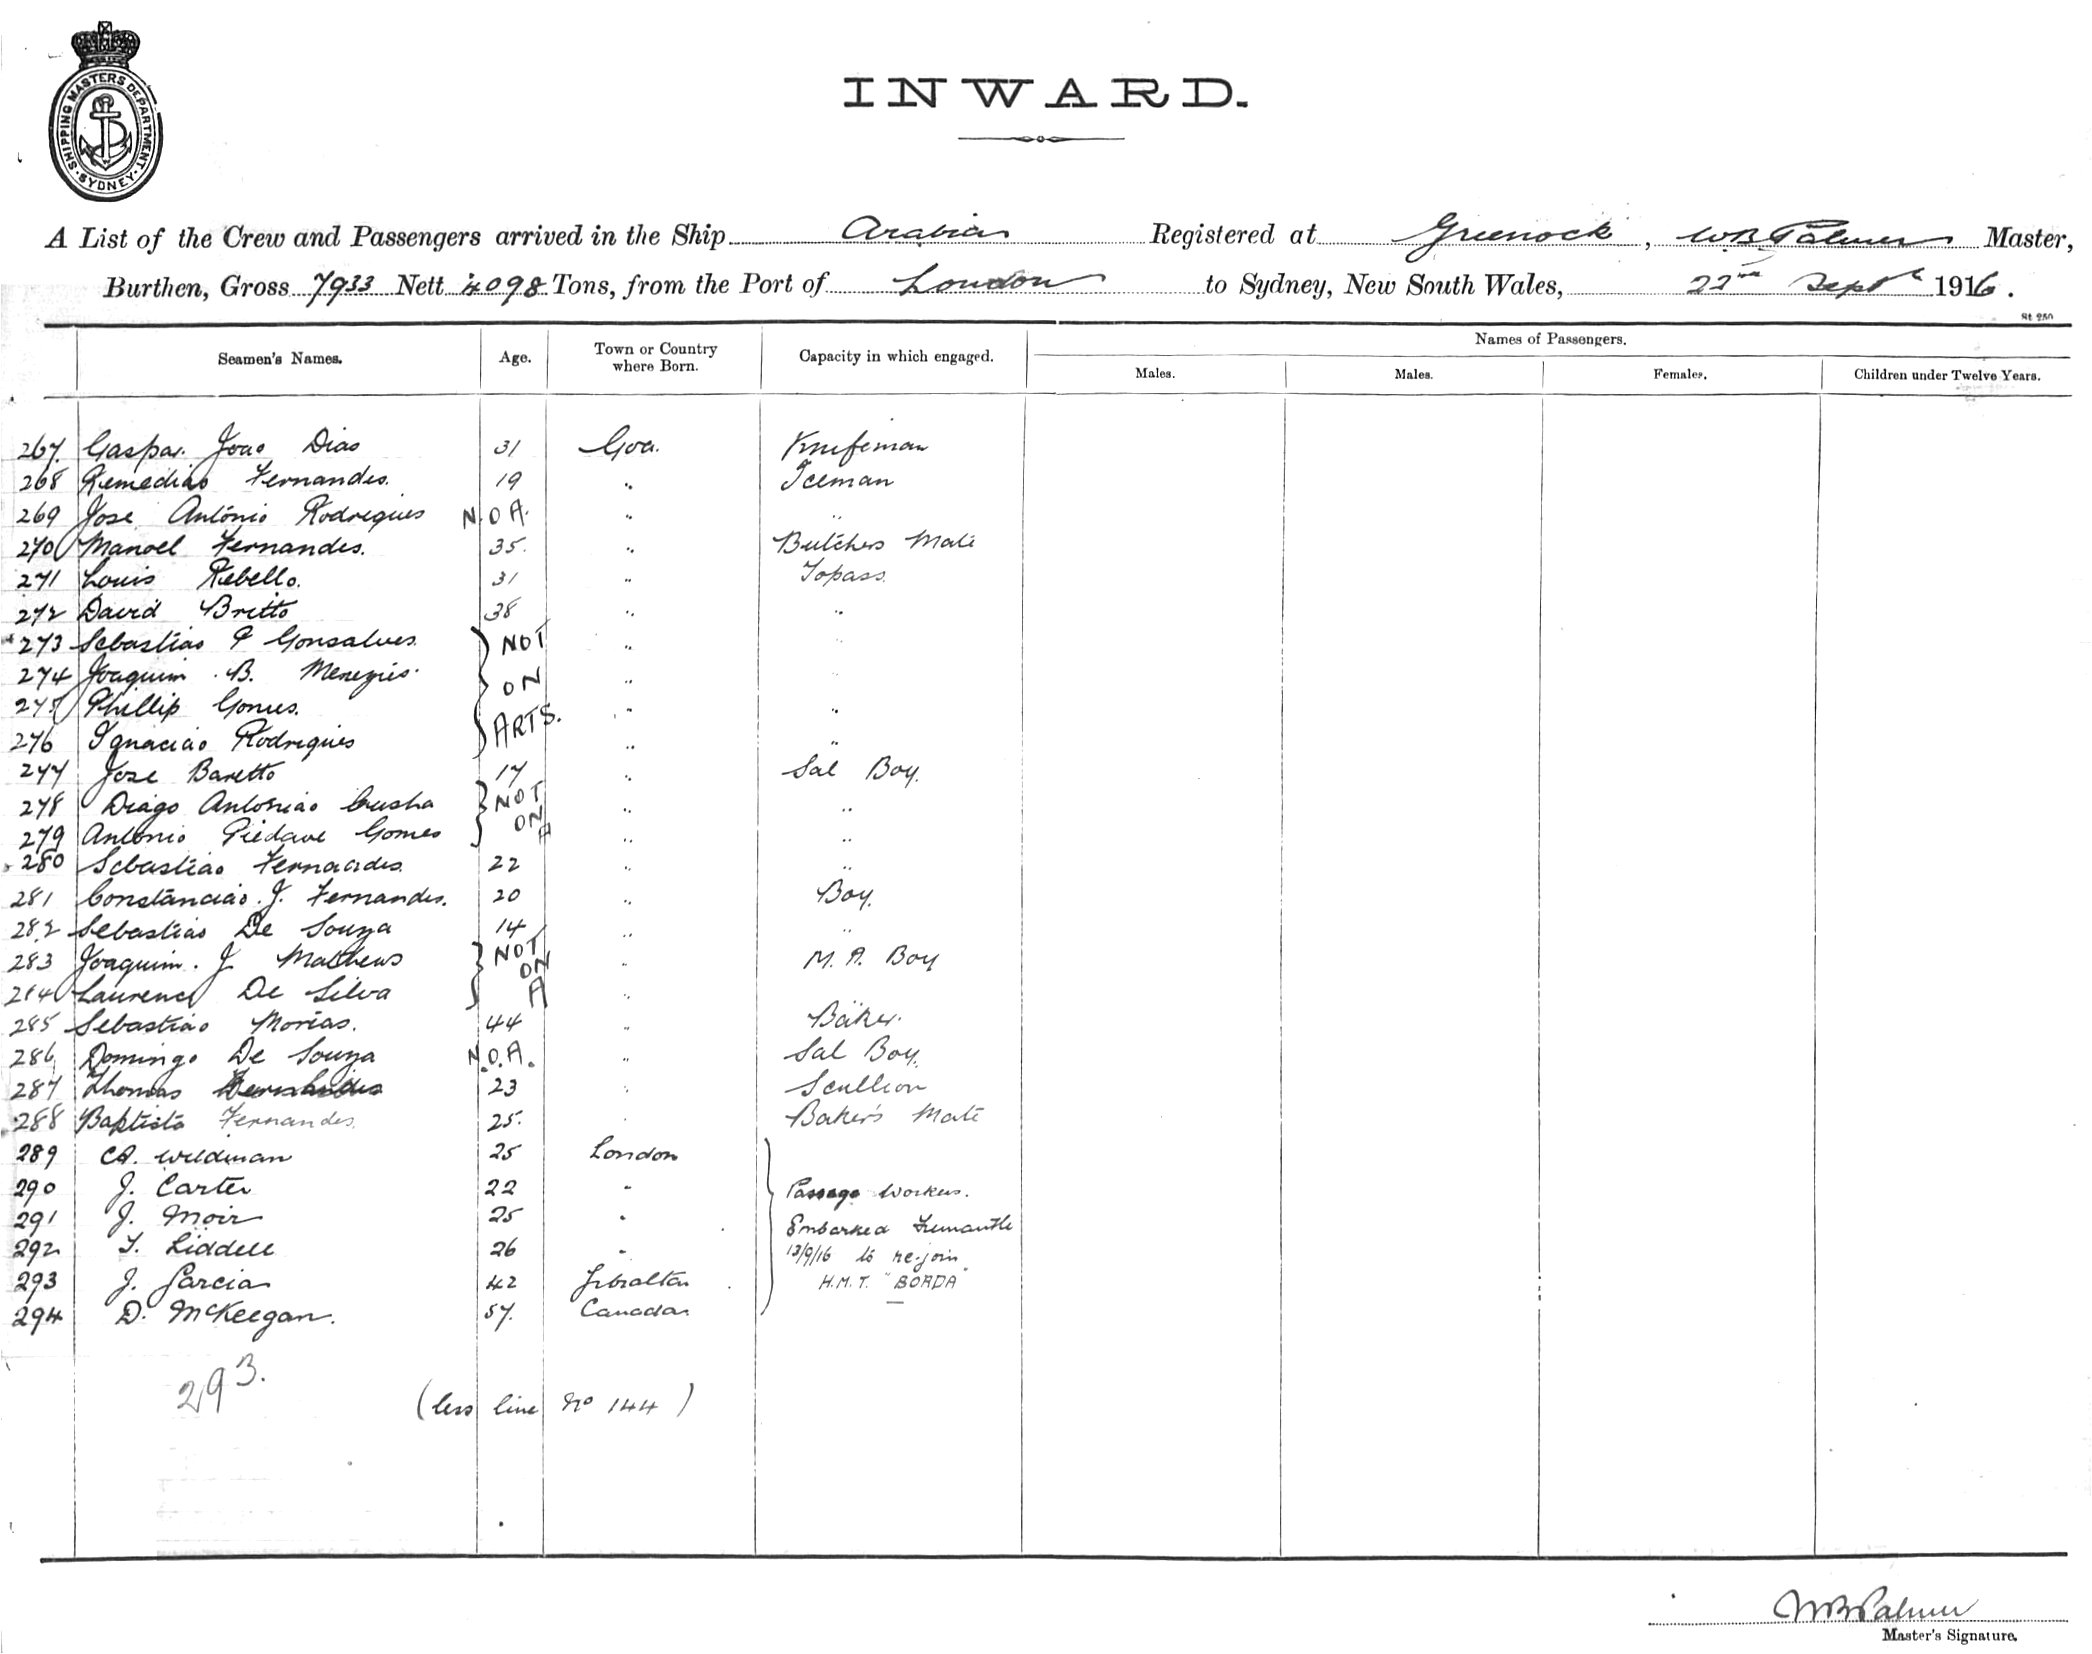 SHIPPING MASTERS DEPARTMENT
SYDNEY
INWARD.
A List of the Crew and Passengers arrived in the Ship Arabia Registered at Greenock, W.B. Palmer Master,
Burthen, Gross 7933 Nett 4098 Tons, from the Port of London to Sydney, New South Wales, 22nd Sept 1916.
St 250
Seamen's Names. Age. Town or Country where Born. Capacity in which engaged. Names of Passengers.
Males. Males. Females. Children under Twelve Years.
267. Gaspar Joao Dias 31 Goa. Knifeman
268 Remedias Fernandes. 19 " Iceman
269 Jose Antonio Rodrigues N.O.A. " "
270 Manoel Fernandes. 35. " Butchers Mate
271 Louis Rebello. 31 " Topass.
272 David Britto 38 " "
273 Sebastiao P Gonsalves. NOT " "
274 Joaquim B. Menezies. ON " "
275 Phillip Gomes. ARTS. " "
276 Ignaciao Rodrigues " "
277 Jose Baretto 17 " Sal Boy.
278 Diago Antoniao Cusha NOT " "
279 Antonio Piedave Gomes ON A " "
280 Sebastiao Fernandes. 22 " "
281 Constanciao. J. Fernandes. 20 " Boy.
282 Sebastiao De Souza 14 " "
283 Joaquim. J. Matheus NOT ON " M. A. Boy
284 Laurence De Silva A "
285 Sebastiao Morias. 44 " Baker.
286 Domingo De Souza N.O.A. " Sal Boy.
287 Thomas Fernandes 23 " Scullion
288 Baptista Fernandes. 25. " Baker's Mate
289 Wildman 25 London
290 J. Carter 22 " Passage Workers.
291 J. Moir 25 " Embarked Fremantle
292 T. Liddell 26 " 13/9/16 to re-join
293 J. Garcia 42 Gibraltar. H.M.T. "BORDA"
294 D. McKeegan. 57. Canada.
293.
(less line No 144)
W B Palmer
Master's Signature.